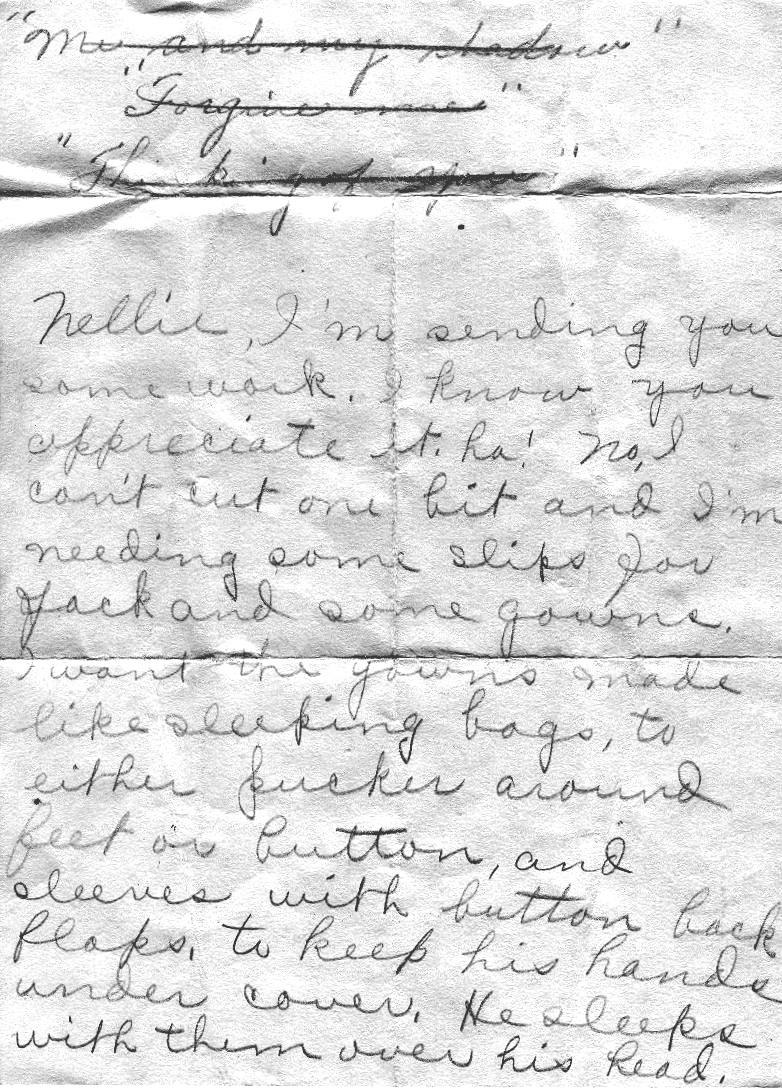 "Me and my shadow"
"Forgive me"
"Thinking of you"
Nellie, I'm sending you
some work. I know you
appreciate it. ha! No, I
can't cut one bit and I'm
needing some slips for
Jack and some gowns.
I want the gowns made
like sleeping bags, to
either pucker around
feet or button, and
sleeves with button back
flaps, to keep his hands
under cover. He sleeps
with them over his head.